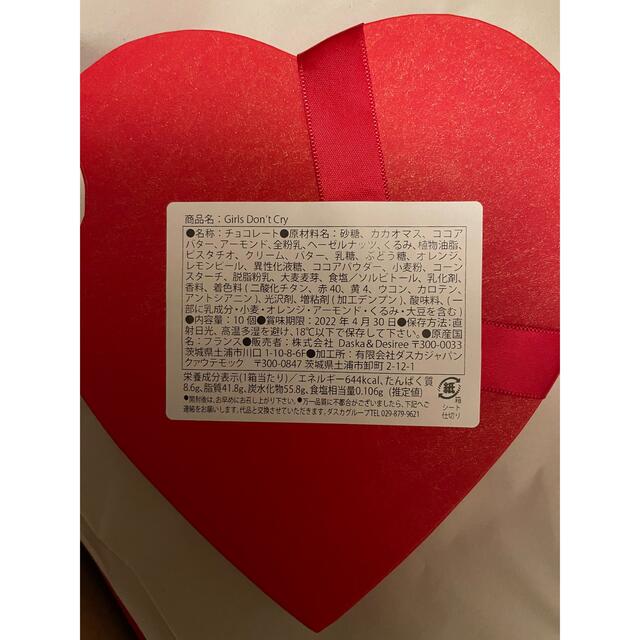 商品名：Girls Don't Cry
●名称：チョコレート●原材料名：砂糖、カカオマス、ココア
バター、アーモンド、全粉乳、ヘーゼルナッツ、くるみ、植物油脂、
ピスタチオ、クリーム、バター、乳糖、ぶどう糖、オレンジ、
レモンピール、異性化液糖、ココアパウダー、小麦粉、コーン
スターチ、脱脂粉乳、大麦麦芽、食塩／ソルビトール、乳化剤、
香料、着色料(二酸化チタン、赤40、黄4、ウコン、カロテン、
アントシアニン)、光沢剤、増粘剤(加工デンプン)、酸味料、(一
部に乳成分・小麦・オレンジ・アーモンド・くるみ・大豆を含む)
●内容量：10個●賞味期限：2022年4月30日●保存方法：直
射日光、高温多湿を避け、18℃以下で保存して下さい。●原産国
名：フランス●販売者：株式会社 Daska&Desiree〒300-0033
茨城県土浦市川口1-10-8-6F●加工所：有限会社ダスカジャパン
クァウテモック 〒300-0847 茨城県土浦市卸町2-12-1
栄養成分表示(1箱当たり)／エネルギー644kcal、たんぱく質
8.6g、脂質41.8g、炭水化物55.8g、食塩相当量0.106g (推定値)
●開封後は、お早めにお召し上がり下さい。●万一品質に不都合がございましたら、下記へご
連絡をお願いします。代品と交換させていただきます。ダスカグループTEL 029-879-9621
紙
箱
シート
仕切り